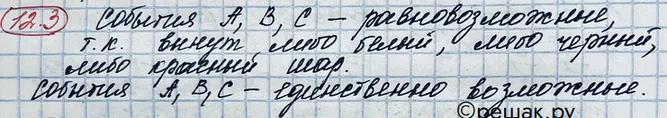 12.3 События А, В, С – равновозможные,
т.к. вынут либо белый, либо черный,
либо красный шар.
События А, В, С – единственно возможные.
©решак.ру